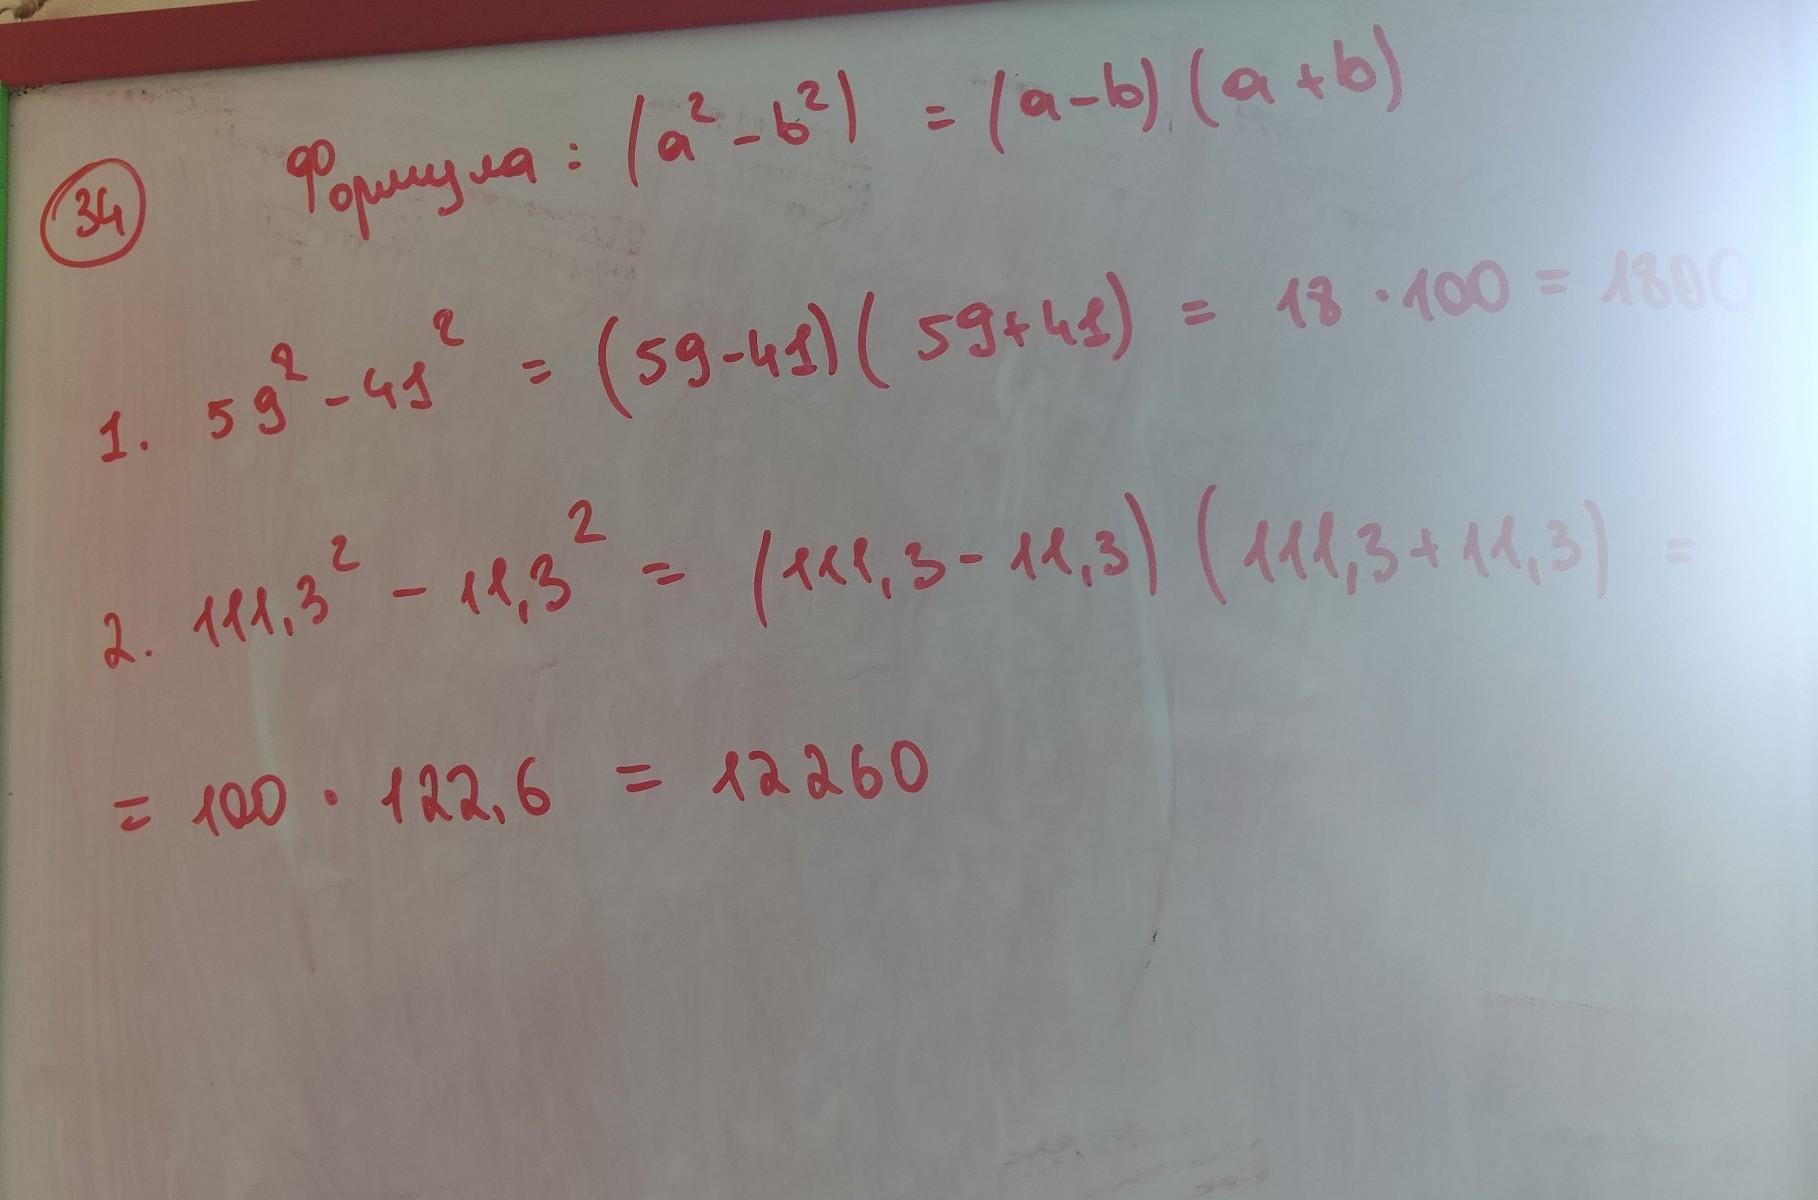 34 Формула: (a² - b²) = (a-b)(a+b)
1. 59² - 41² = (59-41)(59+41) = 18 · 100 = 1800
2. 111,3² - 11,3² = (111,3 - 11,3)(111,3 + 11,3) =
= 100 · 122,6 = 12260